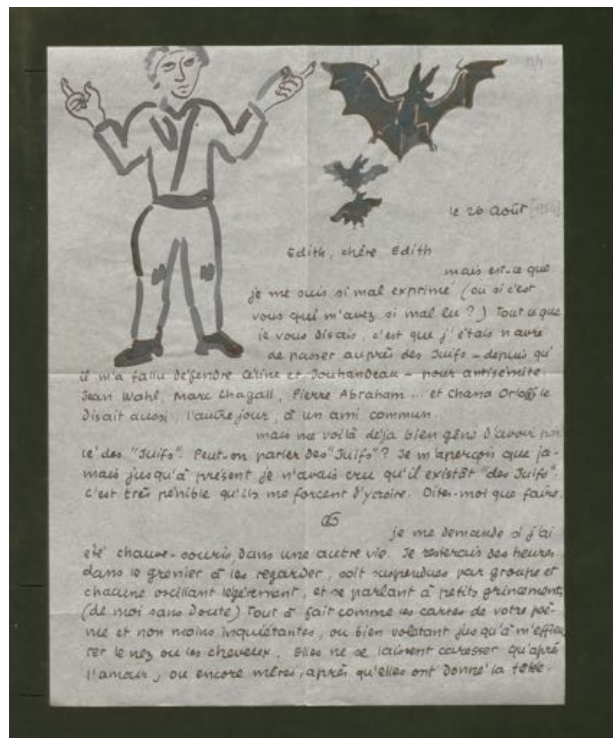 le 26 Août [1956]
Edith, chère Edith
mais est-ce que
je me suis si mal exprimé (ou si c'est
vous qui m'avez si mal lu ?) Tout ce que
je vous disais, c'est que j'étais navré
de passer auprès des Juifs - depuis qu'
il m'a fallu défendre Céline et Jouhandeau - pour antisémite.
Jean Wahl, Marc Chagall, Pierre Abraham ... et Chana Orloff le
disait aussi, l'autre jour, à un ami commun.
mais me voilà déjà bien gêné d'avoir
lé des "Juifs". Peut-on parler des "Juifs"? Je m'aperçois que ja-
mais jusqu'à présent je n'avais cru qu'il existât "des Juifs".
C'est très pénible qu'ils me forcent d'y croire. Dites-moi que faire.
je me demande si j'ai
été chauve-souris, dans une autre vie. Je resterais des heures
dans le grenier à les regarder, soit suspendues par groupe et
chacune oscillant légèrement, et se parlant à petits grincements,
(de moi sans doute) Tout à fait comme les cartes de votre poè-
me et non moins inquiétantes, ou bien voletant jusqu'à m'effleu
rer le nez ou les cheveux. Elles ne se laissent caresser qu'après
l'amour, ou encore mères, après qu'elles ont donné la tétée.